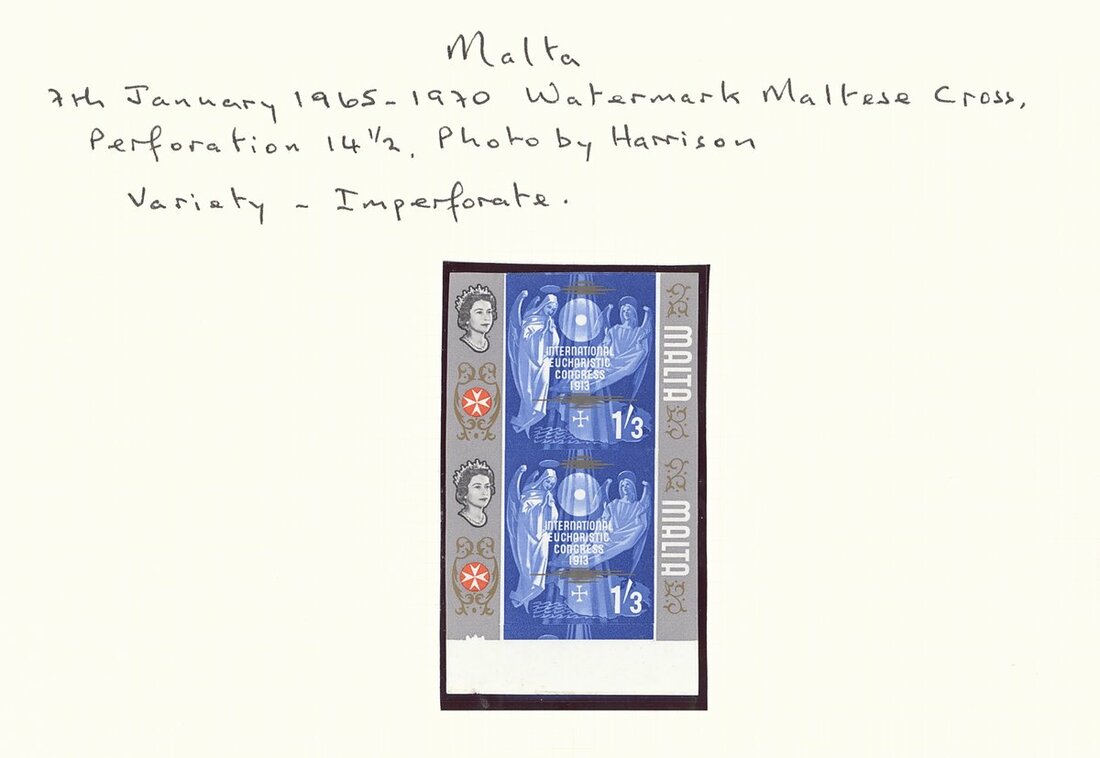 Malta
7th January 1965-1970 Watermark Maltese Cross,
Perforation 14 1/2, Photo by Harrison
Variety - Imperforate.
INTERNATIONAL
EUCHARISTIC
CONGRESS
1913
1/3
MALTA
INTERNATIONAL
EUCHARISTIC
CONGRESS
1913
1/3
MALTA